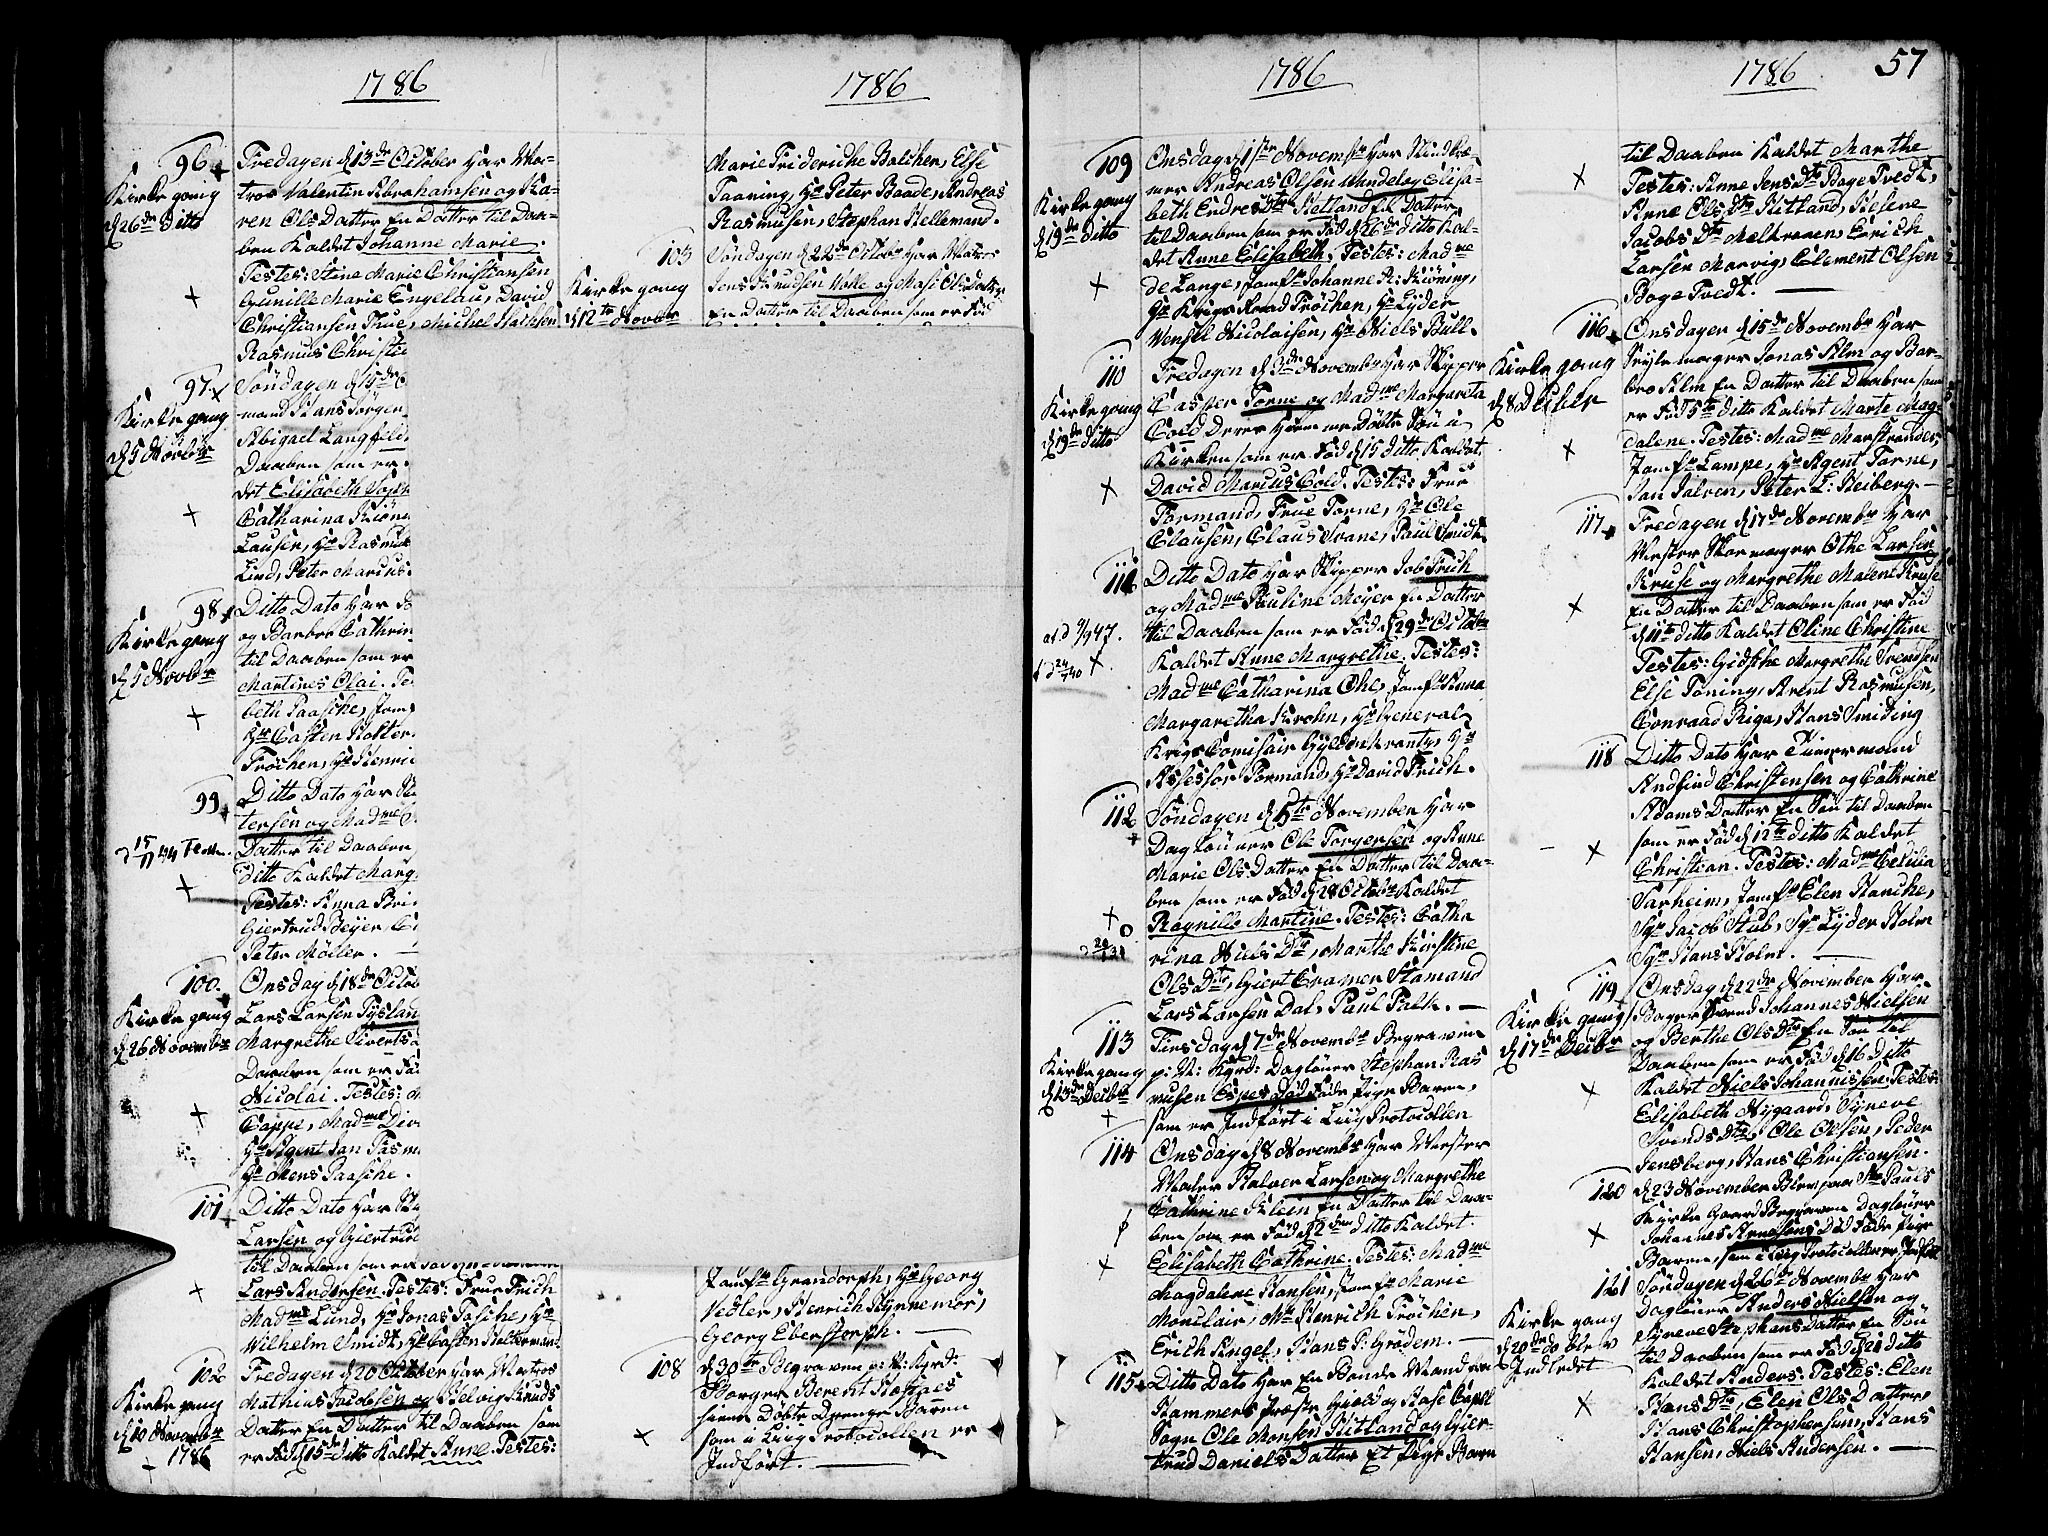 1786
96
Kirkegang
d 26de ditto
Fredagen d 13de October har Ma-
tros Valentin Abrahamsen og Ka-
ren Ols Datter En Datter til Daa-
ben Kaldet Johanne Marie.
Testes: Stine Marie Christiansen
Gunille Marie Engelau, David
Christiansen Thue, Michel
Rasmus Christi
97
Kirkegang
d 5 Novbr
Søndagen d 15de
mand Hans Jörgen
Abigael Langfeld
Daaben som er
det Elisabeth
Catharina
Lausen, Hr Rasmus
Lind, Peter Marcus
98
Kirkegang
d 5 Novbr
Ditto Dato har
og Barbro Cathrin
til Daaben som er
Martines Olai. Te
beth Paasche, Jomf
Hr Casten Holter
Fröchen, Hr Henric
99
Ditto Dato har
tersen og Madme
Datter til Daaben
ditto Kaldet Marg
Testes: Anna Bri
Giertrud Beyer, C
Peter Möller.
100
Kirkegang
d 26 Novembr
Onsdag d 18de Octob
Lars Larsen Tyslan
Margrethe Sivertsd
Daaben som er Föd
Nicolai. Testes:
Cappe, Madme
Hr Agent Jan Fasm
Hr Mons Paasche.
101
Ditto Dato har
Larsen og Giertrud
til Daaben som er
Lars Andersen. Testes: Frue Frich
Madme Lund, Hr Jonas Fasche, Hr
Wilhelm Smidt, Hr Casten
102
Kirkegang
d 10 November
1786
Fredagen d 20 October har Matros
Mathias Jacobsen og Selvig Knuds
Datter En Datter til Daaben som
er Föd d 15de ditto Kaldet Anne. Testes:
1786
Marie Frideriche Balchen, Else
Taaning, Hr Peter Baade, Andreas
Rasmusen, Stephan Hellemand.
103
Kirkegang
d 12te Novbr
Søndagen d 22de Octobr har Matros
Jens Knudsen Wolle og Masi Ols Datter
En Datter til Daaben som er Föd
Jomfr Grandorph, Hr Georg
Vedler, Henrich Hynnemör,
Georg Ebersterph.
108
d 30te Begraven p: N: Kgrd:
Borger Berent
sinne Döbte Drenge Baren
som i Liig Protocollen er
Indfört.
1786
109
Kirkegang
d 19de ditto
Onsdag d 1ste Novembr har
mer Andreas Olsen Wandel og Elisa-
beth Endres Dtr Hetland En Datter
til Daaben som er Föd d 26de ditto Kal-
det Anne Elisabeth, Testes: Madme
de Lange, Jomfr Johanne H: Kröning,
Hr Krigs Raad Fröchen, Hr Lyder
Wensel Nicolaisen, Hr Niels Bull.
110
Kirkegang
d 19de ditto
Fredagen d 3de Novembr har Skipper
Casper Torne og Madme Margareta
Cold Deres Hiemme Döbte Sön i
Kirken som er Föd d 15 ditto Kaldet.
David Marcus Cold. Testes: Frue
Formand, Frue Torne, Hr Ole
Clausen, Claus Svane, Paul Smidt.
111
Ditto Dato har Skipper Job Frich
og Madme Pauline Meyer En Datter
til Daaben som er Föd d 29de Octobr
Kaldet Anne Margrethe. Testes:
Madme Catharina Ohe, Jomfr Anna
Margaretha Krohn, Hr General
Krigs Comisair Gyldenkrantz, Hr
Assessor Formand, Hr David Frich.
112
Søndagen d 5te November har
Daglöuner Ole Torgersen og Anne
Marie Ols Datter En Datter til Daa-
ben som er Föd d 28 Octobr Kaldet
Ragnille Martine. Testes: Catha
rina Niels Dtr, Marthe Kirstine
Ols Dtr, Giert Cramer Stamand
Lars Larsen Dal, Paul Falk.
113
Kirkegang
d 13de Decbr
Tiersdag d 7de Novembr Begraven
p: N: Kgrd: Daglöner Stephan Ras
musen Espes Död Föde Pige Baren,
som er Indfört i Liig Protocollen
114
Onsdag d 8 Novembr har Mester
Maler Halver Larsen og Margrethe
Cathrine Klein En Datter til Daa-
ben som er Föd d 2den ditto Kaldet.
Elisabeth Cathrine. Testes: Madme
Magdalene Hansen, Jomfr Marie
Monclair, Mr Henrich Fröchen,
Erich Angel, Hans P: Grödem.
115
Ditto Dato har En Bonde Mand
Hammers Præste Gield og Hase Capel
Sogn Ole Monsen Hitland og Gier-
trud Daniels Datter Et Pige Barn
1786
57
til Daaben Kaldet Marthe
Testes: Anne Jens Dtr Boge Tvedt,
Anne Ols Dtr Hitland, Helene
Jacobs Dtr Melkraaen, Erich
Larsen Marvig, Clement Olsen
Boge Tvedt.
116
Kirkegang
d 8 Decbr
Onsdagen d 15de Novembr har
Seylemager Jonas Alm og Bar-
bro Alm En Datter til Daaben som
er Föd 5te ditto Kaldet Marte Mag-
dalene. Testes: Madme Marstrander,
Jomfr Lampe, Hr Agent Farne,
Jan Jalven, Peter L: Heiberg.
117
Fredagen d 17de Novembr har
Mester Skomager Othe Larsen
Kruse og Margrethe Malene Kruse
En Datter til Daaben som er Föd
d 11te ditto Kaldet Oline Christine
Testes: Gidsche Margrethe Svendsen
Else Töning, Arent Rasmusen,
Conraad Riga, Hans Smiding
118
Ditto Dato har Timermand
Andfind Christensen og Cathrine
Adams Datter En Sön til Daaben
som er Föd d 12te ditto Kaldet
Christian. Testes: Madme Cecilia
Sarheim, Jomfr Elen Hanche,
Sgr Jacob Stub, Sgr Lyder Holm
Sgr Hans Holm.
119
Kirkegang
d 17de Decbr
Onsdag d 22de November har
Bager Svend Johannes Nielsen
og Berthe Ols Dtr En Sön til
Daaben som er Föd d 16 ditto
Kaldet Niels Johannissen. Testes:
Elisabeth Nygaard, Syneve
Svends Dtr, Ole Olsen, Peder
Jensberg, Hans Christiansen.
120
d 23 November Blev paa Ste Pauls
Kirke Gaard Begraven Daglöner
Johannes Arnesens Död Föde Pige
Baren, som i Liig Protocollen er Indfört
121
Kirkegang
d 20de do blev
Indledet
Søndagen d 26de Novembr har
Daglöner Anders Nielsen og
Syneve Stephans Datter En Sön
til Daaben som er Föd d 21 ditto
Kaldet Anders. Testes: Elen
Hans Dtr, Elen Ols Datter,
Hans Christophersen, Hans
Hansen, Niels Andersen.